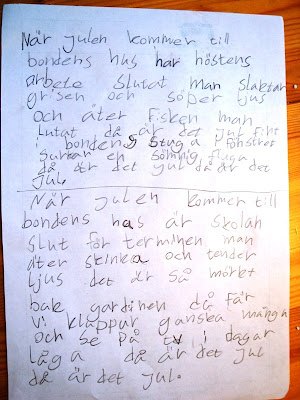 När julen kommer till
bondens hus har höstens
arbete slutat man slaktar
grisen och söper ljus
och äter fisken man
lutat då är det jul fint
i bondens stuga fönstret
surrar en sömnig fluga
då är det jul då är det
jul.
När julen kommer till
bondens hus är skolan
slut för terminen man
äter skinka och tender
ljus det är så mörkt
bak gardinen då får
vi klappur ganska många
och se på tv i dagar
låga då är det jul
då är det jul.